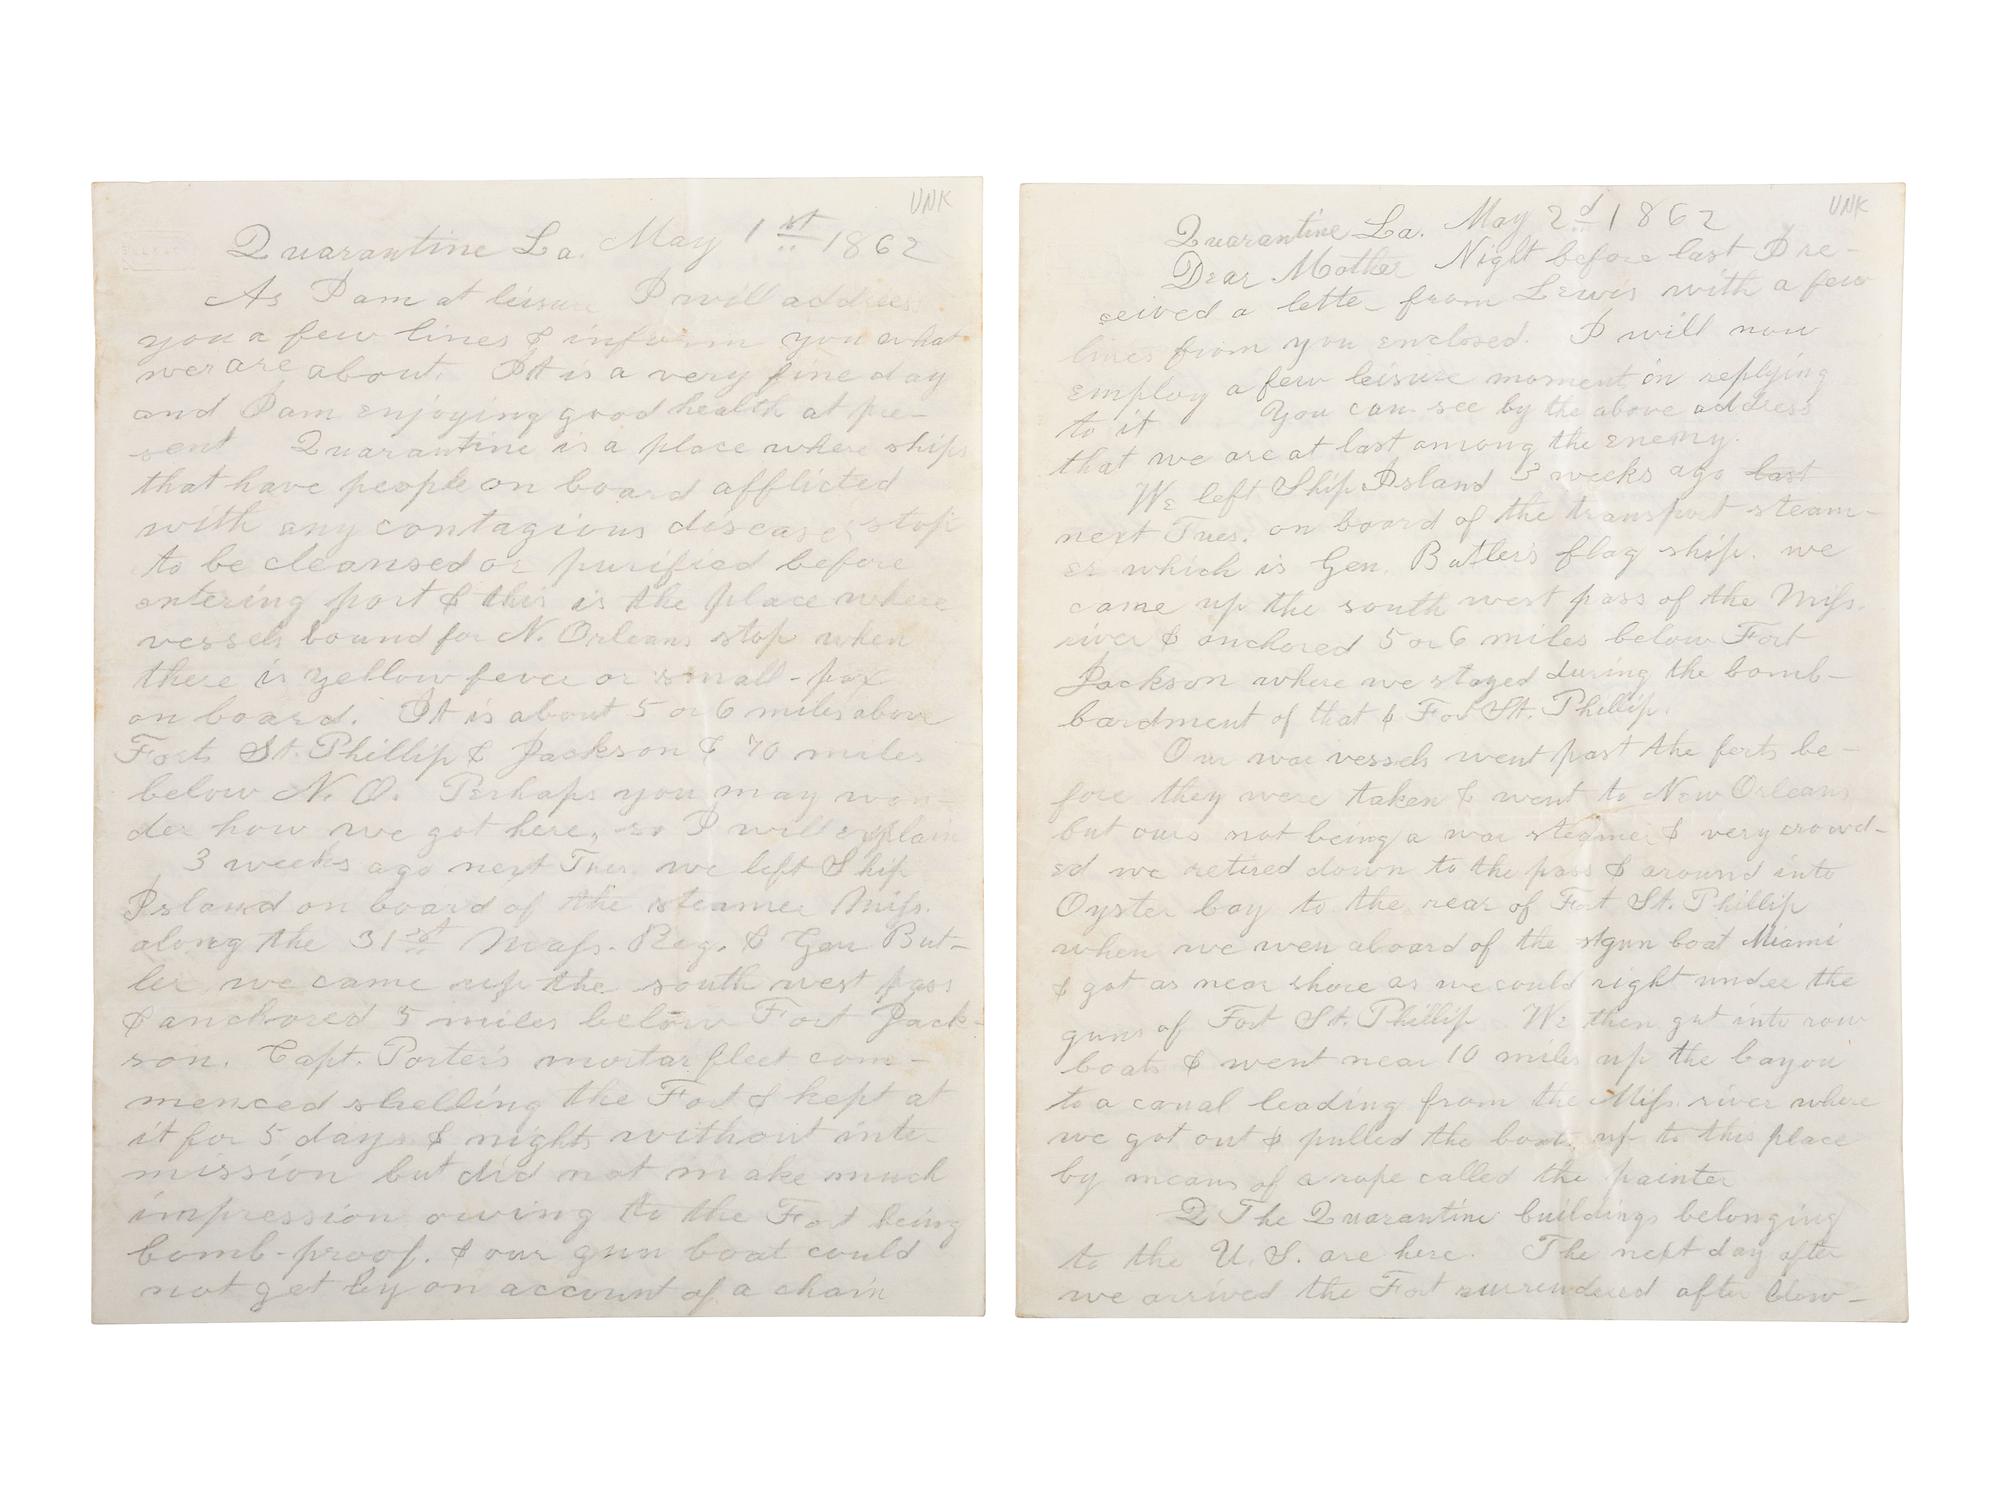 UNK
Quarantine La. May 1st 1862
As I am at leisure I will address
you a few lines & inform you what
we are about. It is a very fine day
and I am enjoying good health at pre-
sent Quarantine is a place where ships
that have people on board afflicted
with any contagious diseases stop
to be cleansed or purified before
entering port & this is the place where
vessels bound for N. Orleans stop when
there is yellow fever or small-pox
on board. It is about 5 or 6 miles above
Forts St. Phillip & Jackson & 70 miles
below N. O. Perhaps you may won-
der how we got here, so I will explain
3 weeks ago next Tues. we left Ship
Island on board of the steamer Miss.
along the 31st Mass. Reg. & Gen But-
ler we came up the south west pass
& anchored 5 miles below Fort Jack-
son. Capt. Porter's mortar fleet com-
menced shelling the Fort & kept at
it for 5 days & nights without inte-
mission but did not make much
impression owing to the Fort being
bomb-proof. & our gun boat could
not get by on account of a chain
UNK
Quarantine La. May 2d 1862
Dear Mother Night before last I re-
ceived a letter from Lewis with a few
lines from you enclosed. I will now
employ a few leisure moment in replying
to it You can see by the above address
that we are at last among the enemy.
We left Ship Island 3 weeks ago last
next Tues. on board of the transport steam-
er which is Gen. Butler's flag ship. we
came up the south west pass of the Miss.
river & anchored 5 or 6 miles below Fort
Jackson where we stayed during the bomb-
bardment of that & Fort St. Phillip.
Our war vessels went past the forts be-
fore they were taken & went to New Orleans
but ours not being a war steamer & very crowd-
ed we retired down to the pass & around into
Oyster bay to the rear of Fort St. Phillip
when we wen aboard of the gun boat Miami
& got as near shore as we could right under the
guns of Fort St. Phillip We then got into row
boats & went near 10 miles up the bayou
to a canal leading from the Miss. river where
we got out & pulled the boats up to this place
by means of a rope called the painter
The Quarantine buildings belonging
to the U. S. are here. The next day after
we arrived the Fort surrendered after blow-